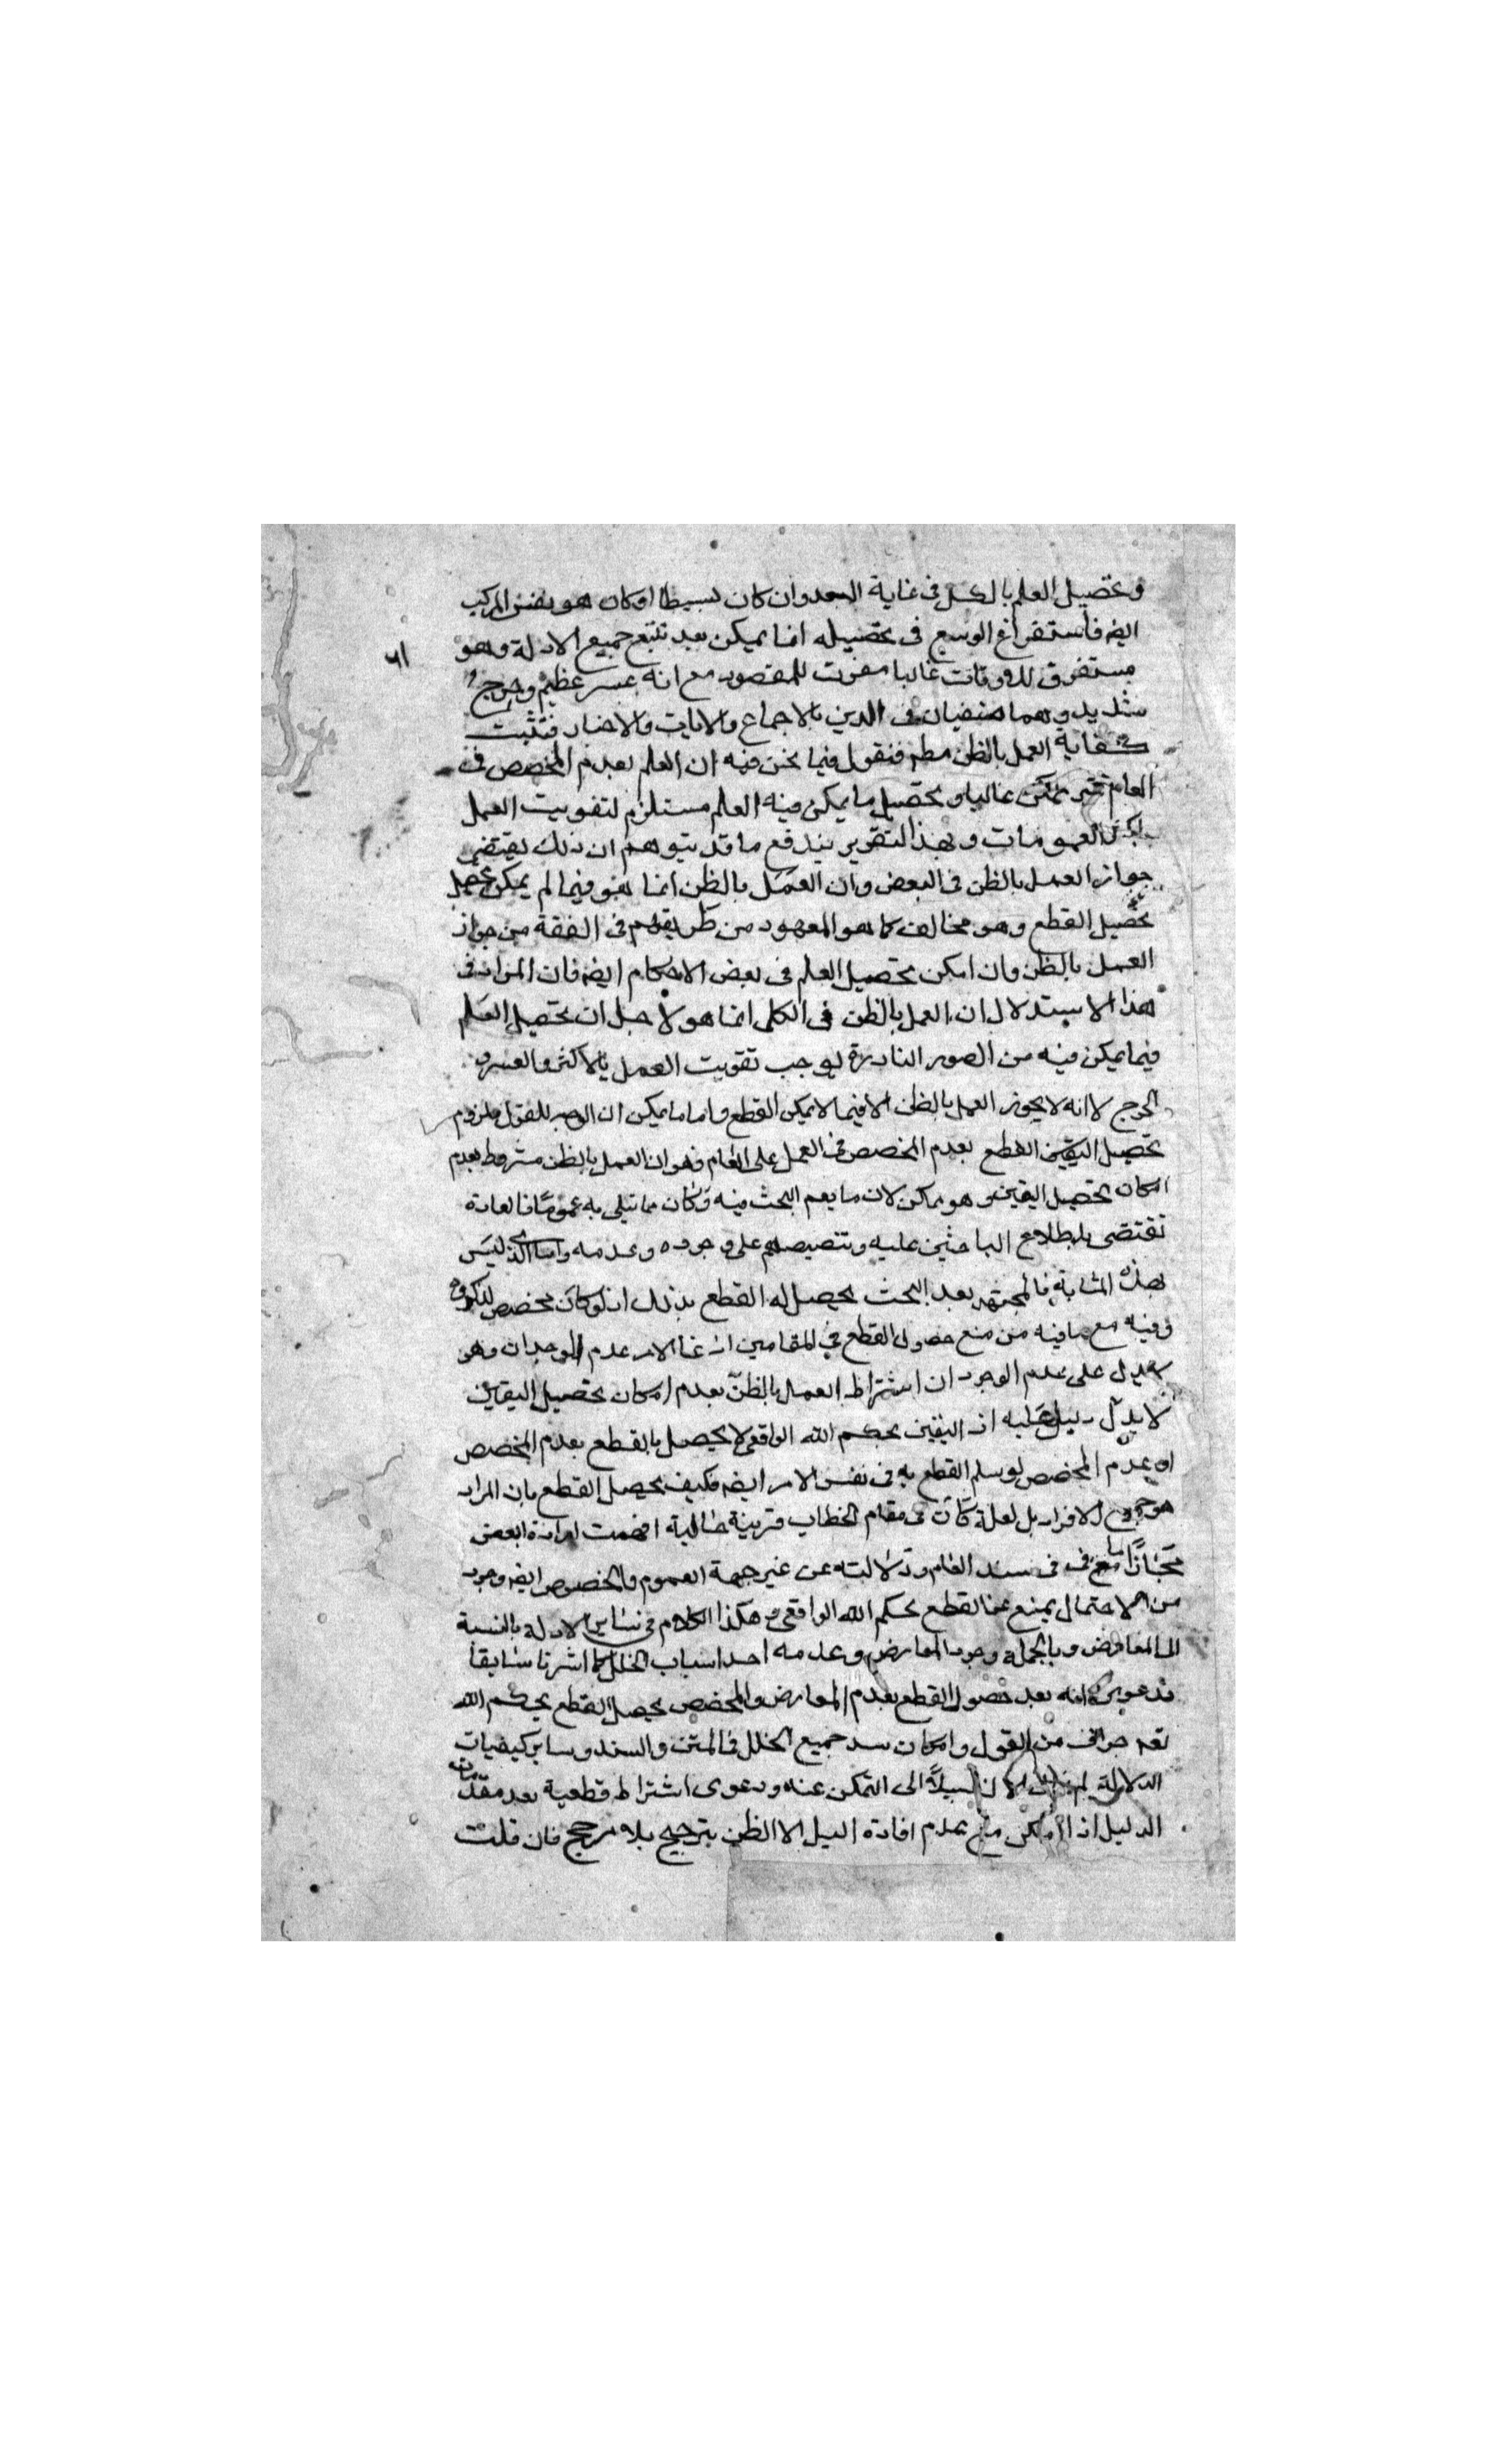 وتحصيل العلم بالكل في غاية البعد وان كان بسيطا او كان هو نفس المركب
ايضا فاستفراغ الوسع في تحصيله انما يمكن بعد تتبع جميع الادلة وهو
مستغرق للاوقات غالبا مفوت للمقصود مع انه عسر عظيم وحرج
شديد وهما منفيان في الدين بالاجماع والايات والاخبار فتثبت
كفاية العمل بالظن مطم فنقول فيما نحن فيه ان العلم بعدم المخصص في
العام غير ممكن غالبا وتحصيل ما يمكن فيه العلم مستلزم لتفويت العمل
باكثر العمومات وبهذا التقرير يندفع ما قد يتوهم ان ذلك يقتضي
جواز العمل بالظن في البعض وان العمل بالظن انما هو فيما لم يمكن تحصيل
تحصيل القطع وهو مخالف لما هو المعهود من طريقتهم في الفقه من جواز
العمل بالظن وان امكن تحصيل العلم في بعض الاحكام ايضا فان المراد في
هذا الاستدلال ان العمل بالظن في الكل انما هو لاجل ان تحصيل العلم
فيما يمكن فيه من الصور النادرة يوجب تفويت العمل بالاكثر والعسر و
الحرج لا انه لا يجوز العمل بالظن الا فيما لا يمكن القطع واما ما يمكن ان الوجه للقول بلزوم
تحصيل اليقين القطع بعدم المخصص في العمل على العام فهو ان العمل بالظن مشروط بعدم
امكان تحصيل اليقين وهو ممكن لان ما يعم البحث فيه وكان مما تبتلى به عموما فالعادة
تقتضي باطلاع الباحثين عليه وتنصيصهم على وجوده وعدمه واما الذي ليس
بهذه المثابة فالمجتهد بعد البحث يحصل له القطع بذلك اذ لو كان مخصص لذكروه
وفيه مع ما فيه من منع حصول القطع في المقامين اذ غاية الامر عدم الوجدان وهو
لا يدل على عدم الوجود ان اشتراط العمل بالظن بعدم امكان تحصيل اليقين
لا يدل دليل عليه اذ اليقين بحكم الله الواقعي لا يحصل بالقطع بعدم المخصص
اذ عدم المخصص لو سلم القطع به في نفس الامر ايضا فكيف يحصل القطع بان المراد
هو جميع الافراد بل لعله كان في مقام الخطاب قرينة حالية افهمت ارادة البعض
مجازا مع ما في سند العام ودلالته من غير جهة العموم والخصوص ايضا وجوه
من الاحتمال يمنع عن القطع بحكم الله الواقعي وهكذا الكلام في ساير الادلة بالنسبة
الى المعارض وبالجملة وجود المعارض وعدمه احد اسباب الخلل كما اشرنا سابقا
فدعوى انه بعد حصول القطع بعدم المعارض والمخصص يحصل القطع بحكم الله
تعم جزاف من القول وامكان سد جميع الخلل في المتن والسند وساير كيفيات
الدلالة سبيلا الى التمكن عنه ودعوى اشتراط قطعية بعد مقدمات
الدليل اذا امكن مع عدم افادة الدليل الا الظن ترجيح بلا مرجح فان قلت